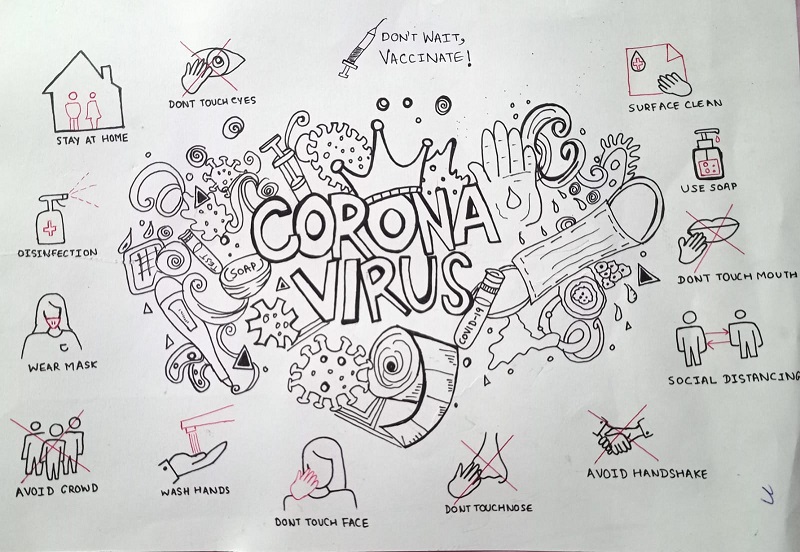 DON'T WAIT,
VACCINATE!
STAY AT HOME
DONT TOUCH EYES
SURFACE CLEAN
USE SOAP
DISINFECTION
DONT TOUCH MOUTH
CORONA
VIRUS
TEST
SOAP
COVID-19
WEAR MASK
SOCIAL DISTANCING
AVOID CROWD
WASH HANDS
DONT TOUCH FACE
DONT TOUCH NOSE
AVOID HANDSHAKE